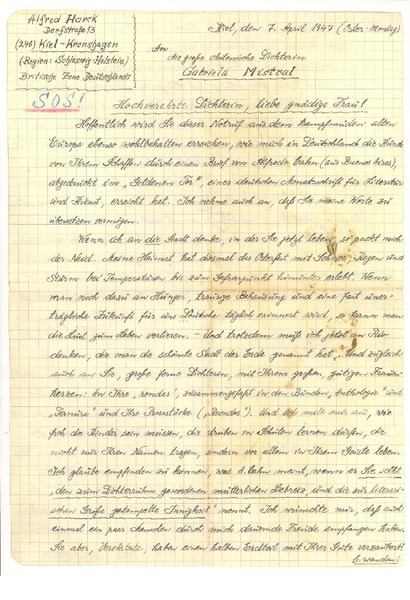 Alfred Harck
Dorfstraße 13
(24b) Kiel-Kronshagen
(Region: Schleswig-Holstein)
Britische Zone Deutschlands
SOS!
Kiel, den 7. April 1947 (Oster-Montag)
An
die große chilenische Dichterin
Gabriela Mistral
Hochverehrte Dichterin, liebe gnädige Frau!
Hoffentlich wird Sie dieser Notruf aus dem kampfmüden alten
Europa ebenso wohlbehalten erreichen, wie mich in Deutschland die Kunde
von Ihrem Schaffen durch einen Brief von Alfredo Cahn (aus Buenos Aires),
abgedruckt im „Goldenen Tor", einer deutschen Monatsschrift für Literatur
und Kunst, erreicht hat. Ich nehme auch an, daß Sie meine Worte zu
übersetzen vermögen.
Wenn ich an die Stadt denke, in der Sie jetzt leben, so packt mich
der Neid. Meine Heimat hat diesmal das Osterfest mit Schnee, Regen und
Sturm bei Temperaturen bis zum Gefrierpunkt hinunter erlebt. Wenn
man noch dazu an Hunger, traurige Behausung und eine fast uner-
trägliche Zukunft für uns Deutsche täglich erinnert wird, so kann man
die Lust zum Leben verlieren. – Und trotzdem muß ich jetzt an Rio
denken, die man die schönste Stadt der Erde genannt hat, und zugleich
auch an Sie, große ferne Dichterin, mit Ihrem großen, gütigen Frauen-
herzen: An Ihre „rondas", zusammengefaßt in den Bänden „Anthologie" und
„Ternura" und Ihre Prosastücke („Recados"). Und ich male mir aus, wie
froh die Kinder sein müssen, die drüben in Schulen lernen dürfen, die
nicht nur Ihren Namen tragen, sondern vor allem in Ihrem Geiste leben.
Ich glaube empfinden zu können, was A. Cahn meint, wenn er Sie selbst
„den zum Dichterruhm gewordenen mütterlichen Liebreiz, und die zur literari-
schen Größe gestempelte Innigkeit" nennt. Ich wünschte mir, daß auch
einmal ein paar Menschen durch mich dauernde Freude empfangen haben.
Sie aber, Verehrteste, haben einen halben Erdteil mit Ihrer Güte verzaubert!
b. wenden!